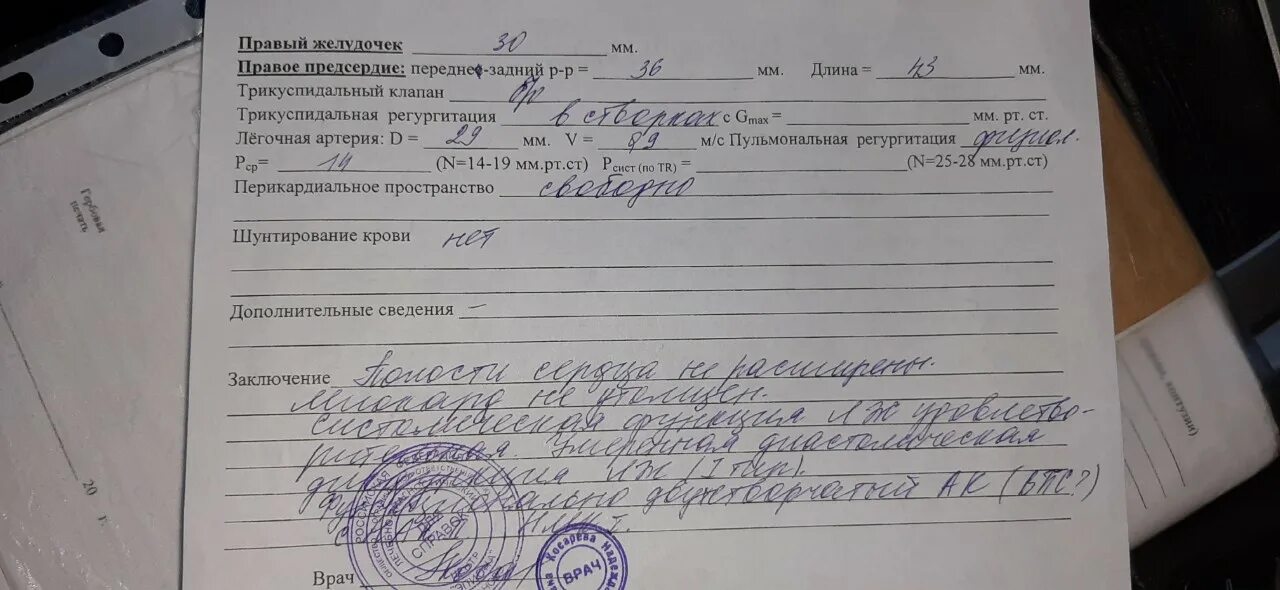 Правый желудочек 30 мм.
Правое предсердие: передне-задний р-р = 36 мм. Длина = 43 мм.
Трикуспидальный клапан б/о
Трикуспидальная регургитация в створках с Gmax = мм. рт. ст.
Лёгочная артерия: D = 29 мм. V = 89 м/с Пульмональная регургитация физиол.
Pср= 14 (N=14-19 мм.рт.ст) Pсист (по TR) = (N=25-28 мм.рт.ст)
Перикардиальное пространство свободно
Шунтирование крови нет
Дополнительные сведения –
Заключение Полости сердца не расширены.
Миокард не утолщен.
Систолическая функция ЛЖ удовлетво-
рительная. Умеренная диастолическая
дисфункция ЛЖ (I тип).
Функционально двухстворчатый АК (БПС?)
Врач
СПРАВОК
Косарева Надежда
ВРАЧ
Гербовая
печать
20 г.